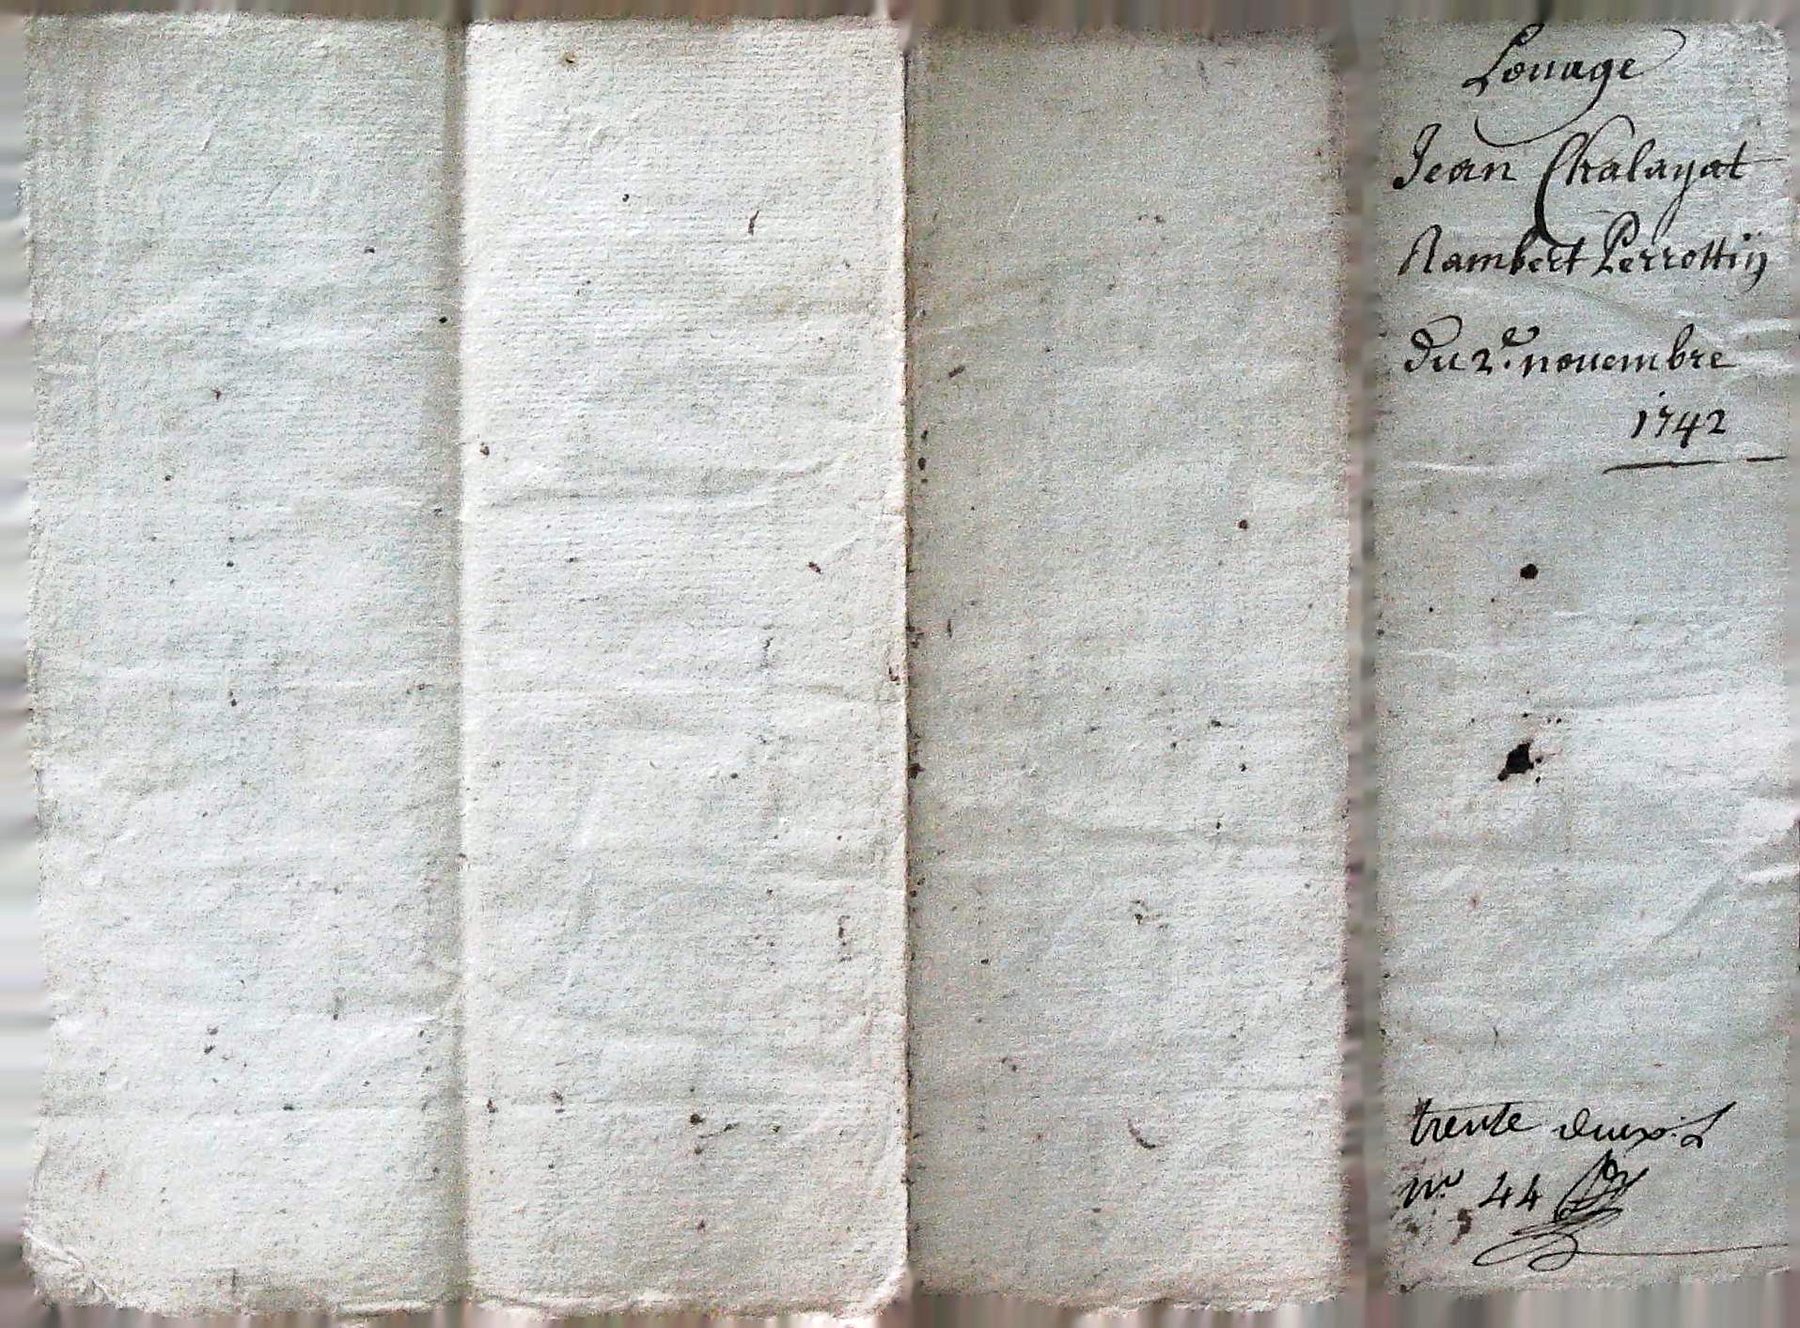 Louage
Jean Chalayat
Rambert Perrottin
du 2.e novembre
1742
trente deux. L
N.o 44